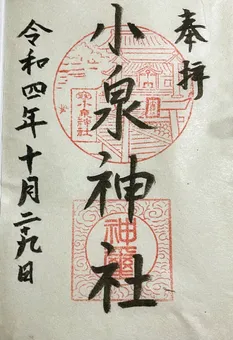 奉拝
小泉神社
小泉神社
神璽
令和四年十月二十九日